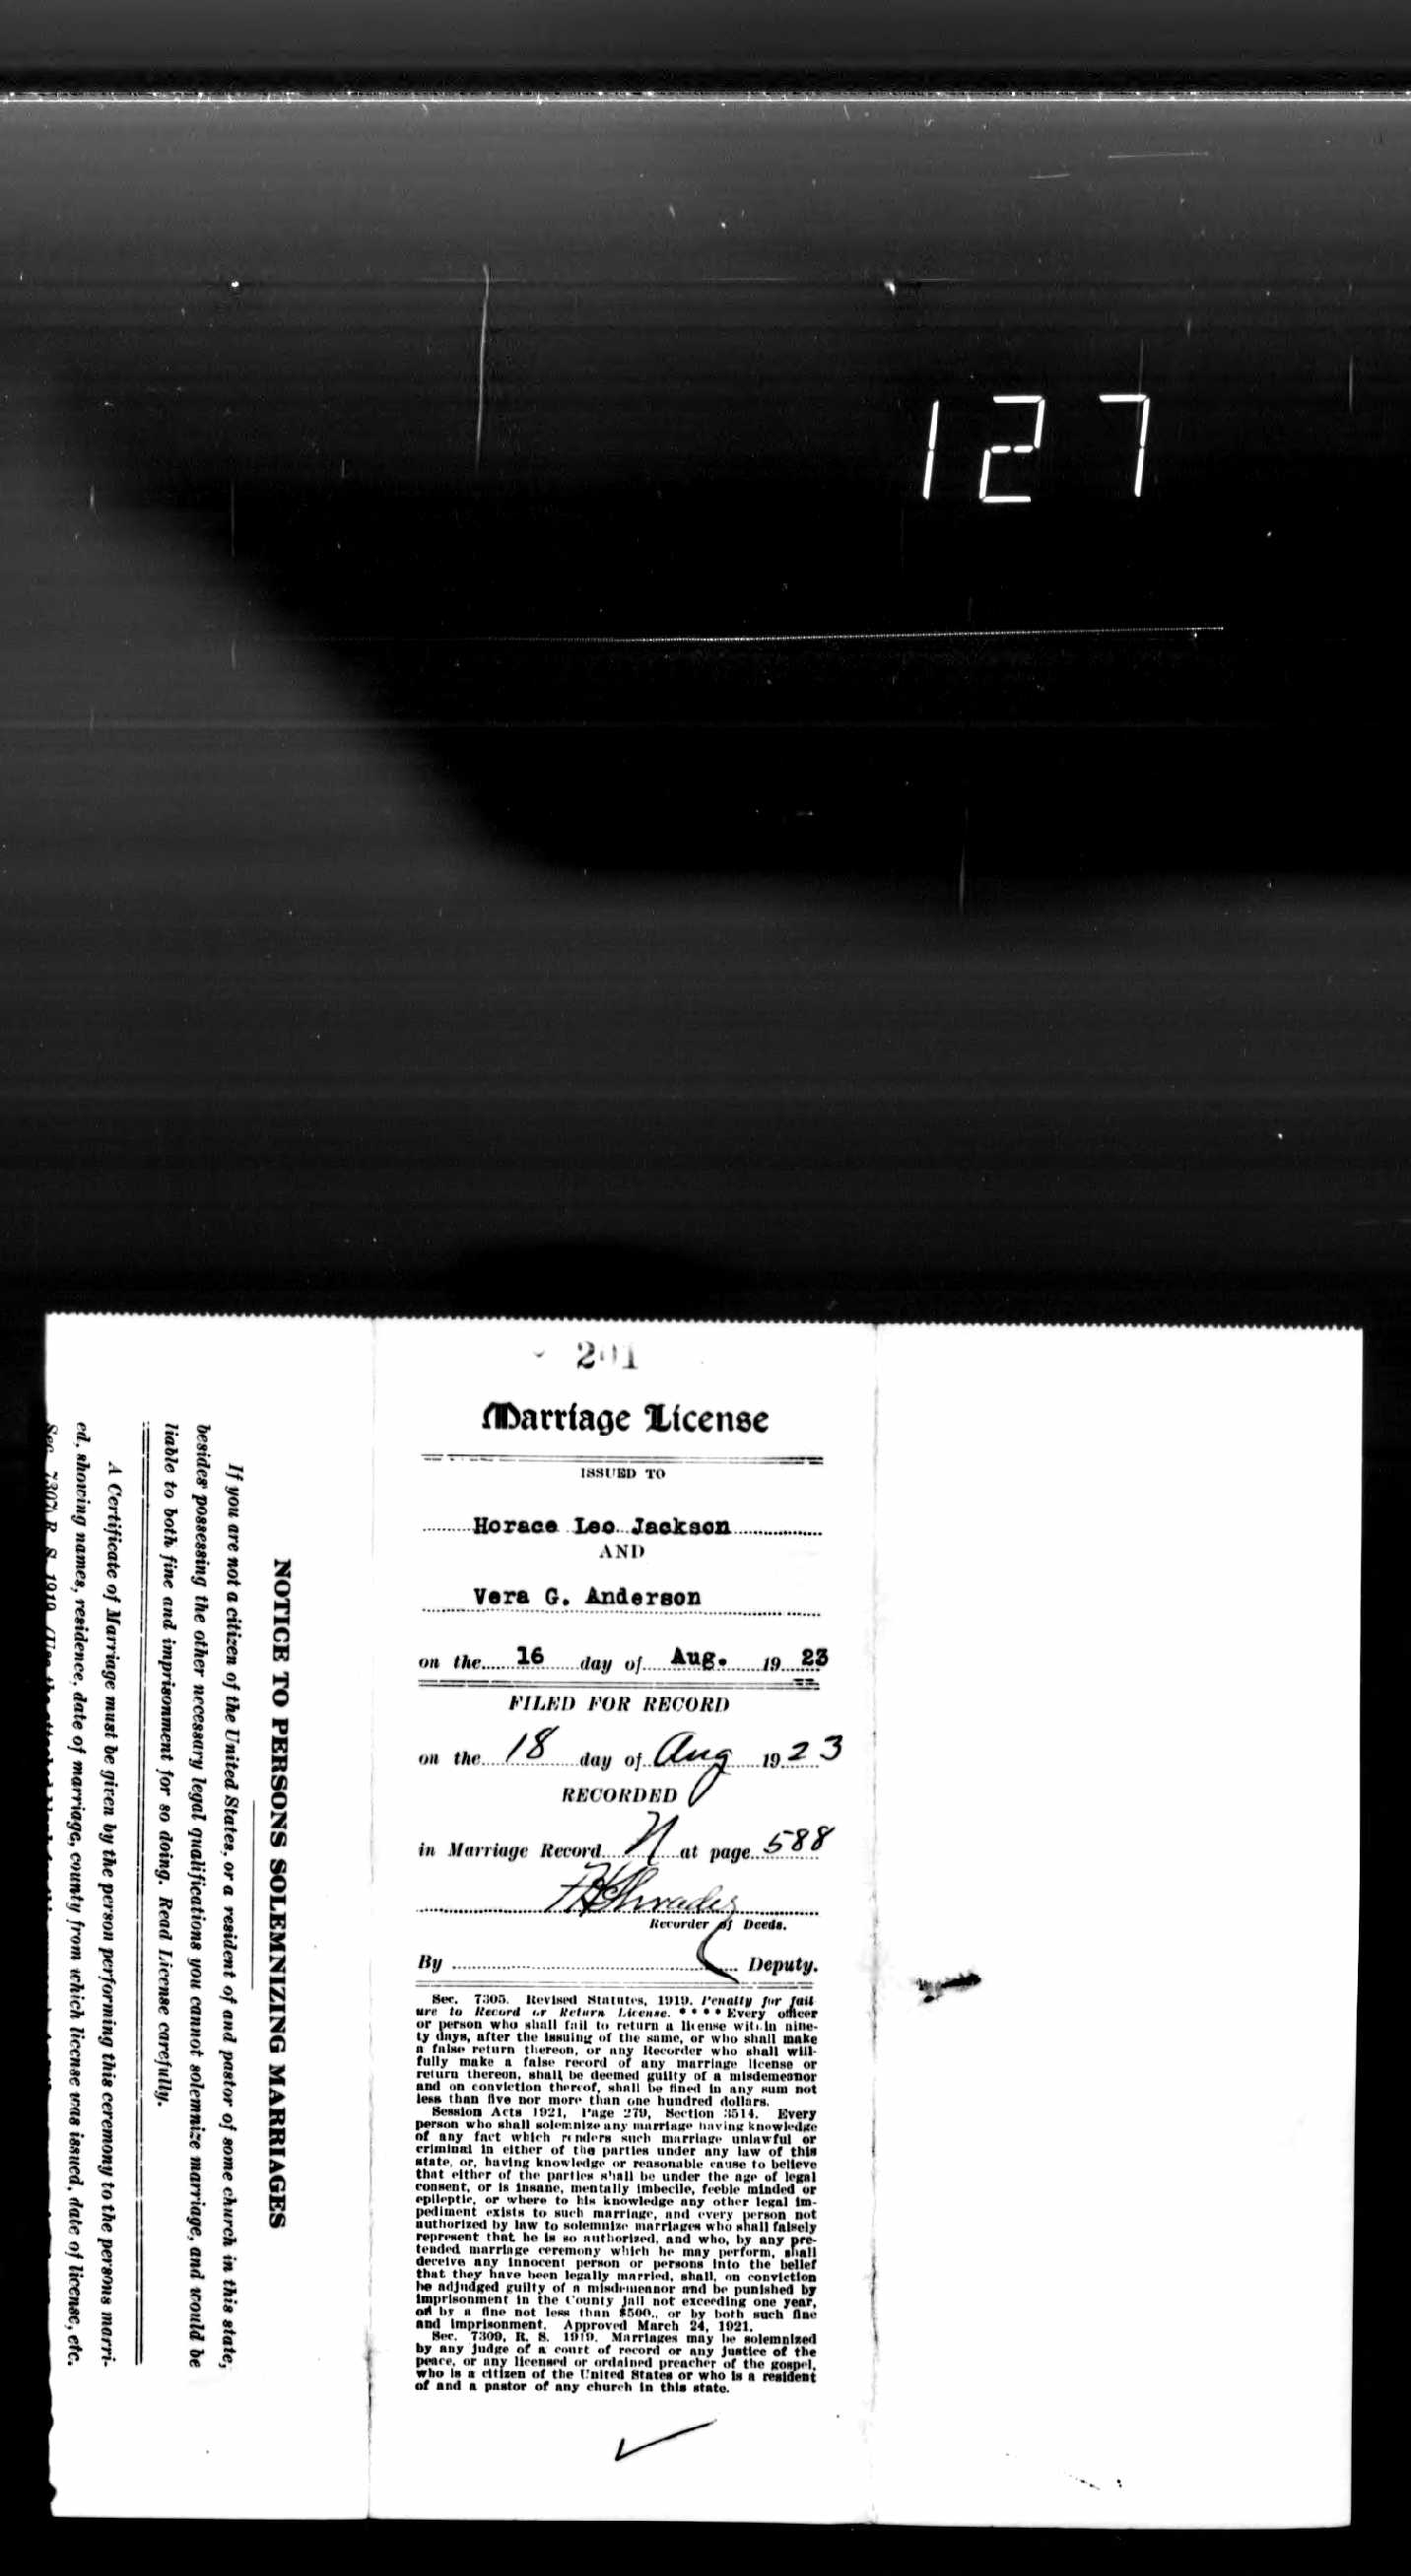 127
201
Marriage License
ISSUED TO
Horace Leo Jackson
AND
Vera G. Anderson
on the 16 day of Aug. 19 23
FILED FOR RECORD
on the 18 day of Aug 19 23
RECORDED
in Marriage Record at page 588
Recorder of Deeds.
By Deputy.
Sec. 7305. Revised Statutes, 1919. Penalty for fail
ure to Record or Return License. * * * * Every officer
or person who shall fail to return a license within nine-
ty days, after the issuing of the same, or who shall make
a false return thereon, or any Recorder who shall will-
fully make a false record of any marriage license or
return thereon, shall be deemed guilty of a misdemeanor
and on conviction thereof, shall be fined in any sum not
less than five nor more than one hundred dollars.
Session Acts 1921, Page 279, Section 3514. Every
person who shall solemnize any marriage having knowledge
of any fact which renders such marriage unlawful or
criminal in either of the parties under any law of this
state, or, having knowledge or reasonable cause to believe
that either of the parties shall be under the age of legal
consent, or is insane, mentally imbecile, feeble minded or
epileptic, or where to his knowledge any other legal im-
pediment exists to such marriage, and every person not
authorized by law to solemnize marriages who shall falsely
represent that he is so authorized, and who, by any pre-
tended marriage ceremony which he may perform, shall
deceive any innocent person or persons into the belief
that they have been legally married, shall, on conviction
be adjudged guilty of a misdemeanor and be punished by
imprisonment in the County jail not exceeding one year,
or by a fine not less than $500., or by both such fine
and imprisonment. Approved March 24, 1921.
Sec. 7309, R. S. 1919. Marriages may be solemnized
by any judge of a court of record or any justice of the
peace, or any licensed or ordained preacher of the gospel,
who is a citizen of the United States or who is a resident
of and a pastor of any church in this state.
NOTICE TO PERSONS SOLEMNIZING MARRIAGES
If you are not a citizen of the United States, or a resident of and pastor of some church in this state,
besides possessing the other necessary legal qualifications you cannot solemnize marriage, and would be
liable to both fine and imprisonment for so doing. Read License carefully.
A Certificate of Marriage must be given by the person performing this ceremony to the persons marri-
ed, showing names, residence, date of marriage, county from which license was issued, date of license, etc.
Sec. 7307 R. S. 1919